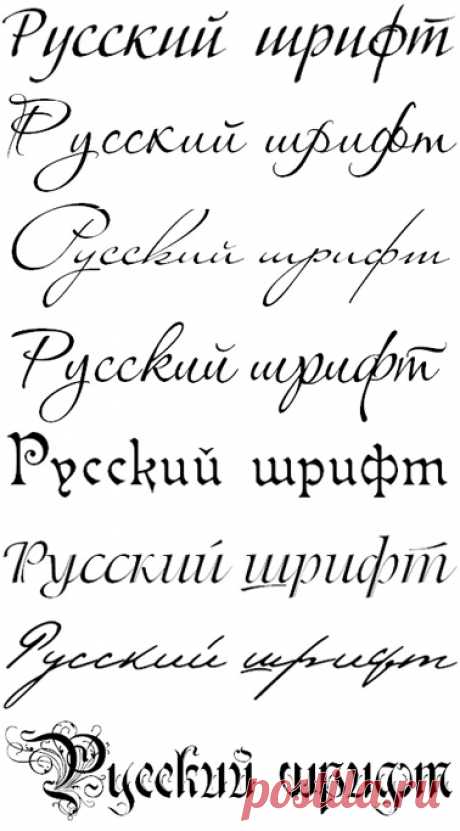 Русский шрифт
Русский шрифт
Русский шрифт
Русский шрифт
Русский шрифт
Русский шрифт
Русский шрифт
Русский шрифт
postila.ru